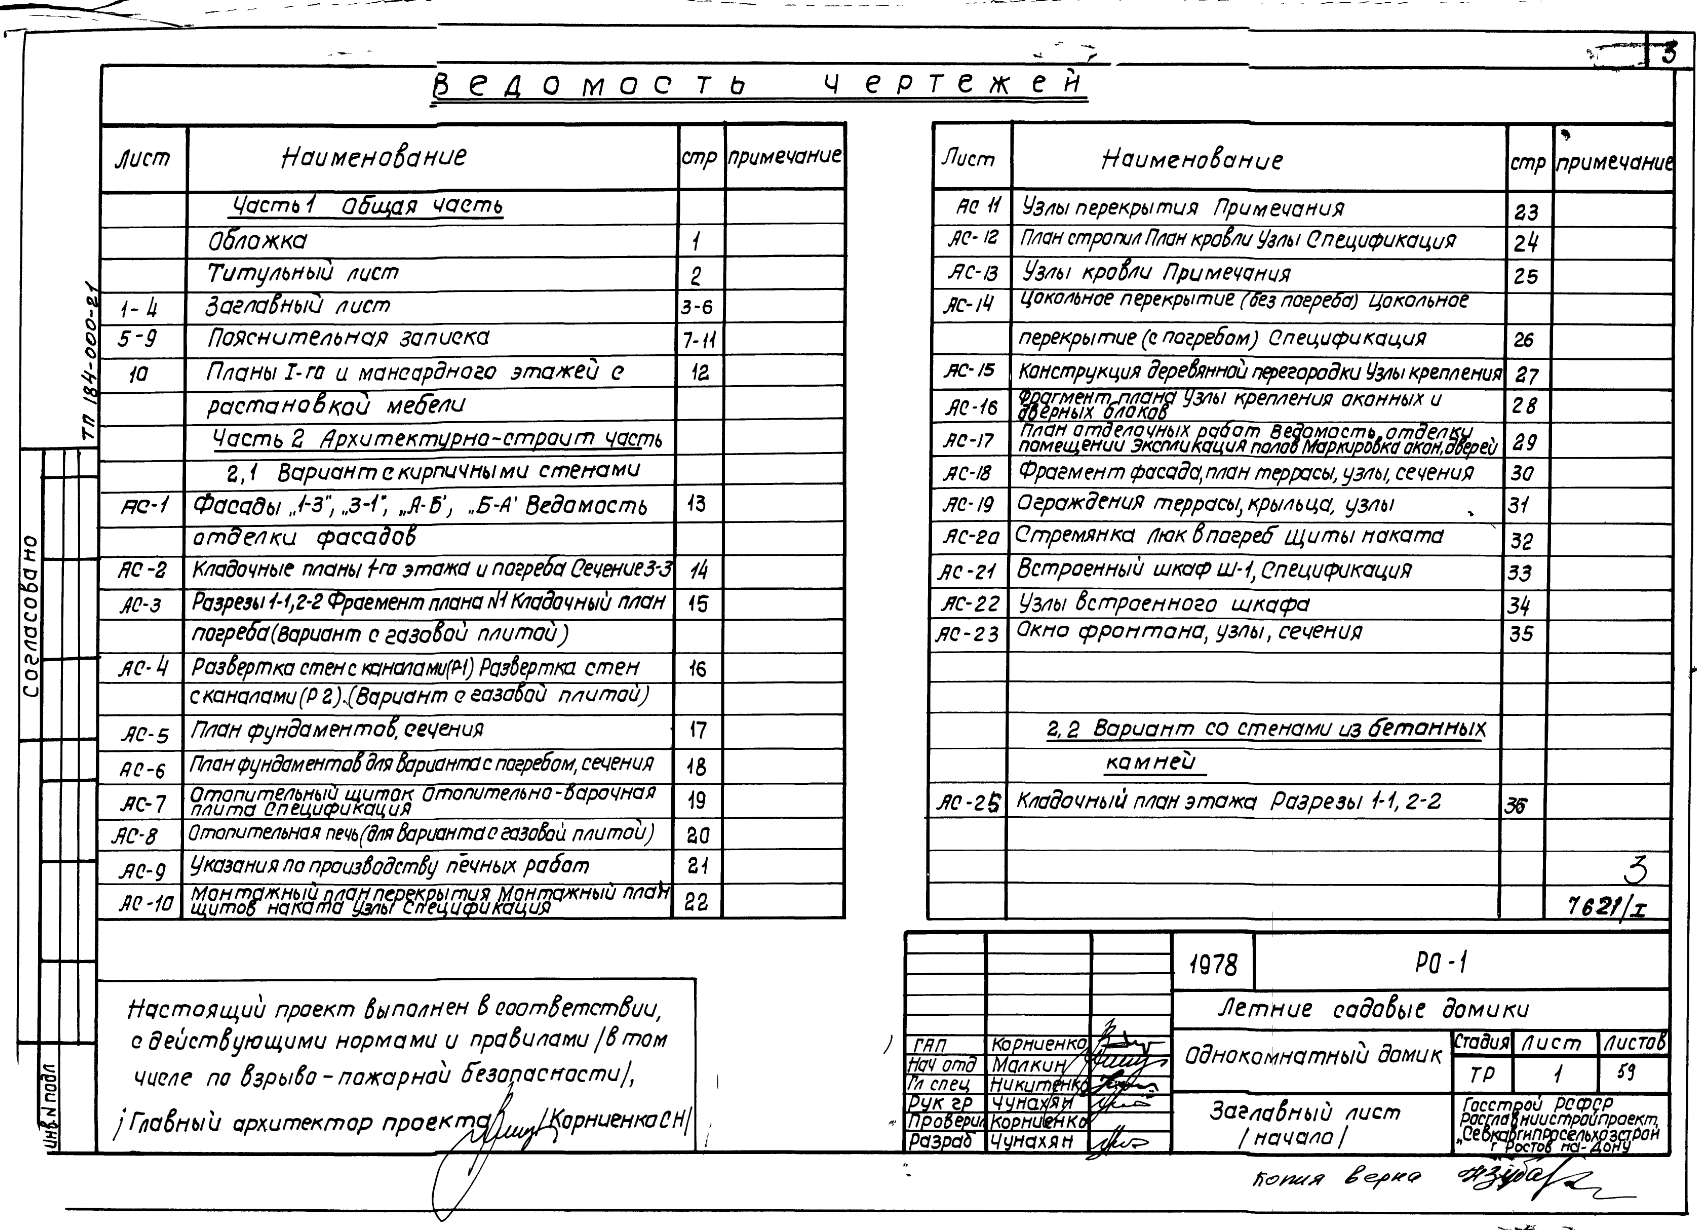 3
Ведомость чертежей
Лист Наименование стр примечание
Часть 1 Общая часть
Обложка 1
Титульный лист 2
1-4 Заглавный лист 3-6
5-9 Пояснительная записка 7-11
10 Планы I-го и мансардного этажей с 12
растановкой мебели
Часть 2 Архитектурно-строит часть
2,1 Вариант с кирпичными стенами
АС-1 Фасады „1-3", „3-1", „А-Б", „Б-А" Ведомость 13
отделки фасадов
АС-2 Кладочные планы 1-го этажа и погреба Сечение 3-3 14
АС-3 Разрезы 1-1, 2-2 Фрагмент плана N1 Кладочный план 15
погреба (вариант с газовой плитой)
АС-4 Развертка стен с каналами (Р1) Развертка стен 16
с каналами (Р2). (Вариант с газовой плитой)
АС-5 План фундаментов, сечения 17
АС-6 План фундаментов для варианта с погребом, сечения 18
АС-7 Отопительный щиток Отопительно-варочная 19
плита Спецификация
АС-8 Отопительная печь (для варианта с газовой плитой) 20
АС-9 Указания по производству печных работ 21
АС-10 Монтажный план перекрытия Монтажный план 22
щитов наката Узлы Спецификация
Лист Наименование стр примечание
АС 11 Узлы перекрытия Примечания 23
АС-12 План стропил План кровли Узлы Спецификация 24
АС-13 Узлы кровли Примечания 25
АС-14 Цокольное перекрытие (без погреба) Цокольное
перекрытие (с погребом) Спецификация 26
АС-15 Конструкция деревянной перегородки Узлы крепления 27
АС-16 Фрагмент плана Узлы крепления оконных и 28
дверных блоков
АС-17 План отделочных работ Ведомость отделки 29
помещении Экспликация полов Маркировка окон, дверей
АС-18 Фрагмент фасада, план террасы, узлы, сечения 30
АС-19 Ограждения террасы, крыльца, узлы 31
АС-20 Стремянка Люк в погреб Щиты наката 32
АС-21 Встроенный шкаф Ш-1, Спецификация 33
АС-22 Узлы встроенного шкафа 34
АС-23 Окно фронтона, узлы, сечения 35
2,2 Вариант со стенами из бетонных
камней
АС-25 Кладочный план этажа Разрезы 1-1, 2-2 36
3
7621/I
ТП 184-000-21
Согласовано
инв.N подл
Настоящий проект выполнен в соответствии,
с действующими нормами и правилами /в том
числе по взрыво-пожарной безопасности/,
/Главный архитектор проекта /Корниенко СН/
1978 РО-1
Летние садовые домики
Однокомнатный домик
Стадия Лист Листов
ТР 1 59
Заглавный лист
/начало/
Госстрой РСФСР
Росглавниистройпроект,
„Севкавгипросельхозстрой
г Ростов на-Дону
ГАП Корниенко
Нач отд Малкин
Гл спец Никитенко
Рук гр Чунахян
Проверил Корниенко
Разраб Чунахян
Копия верна